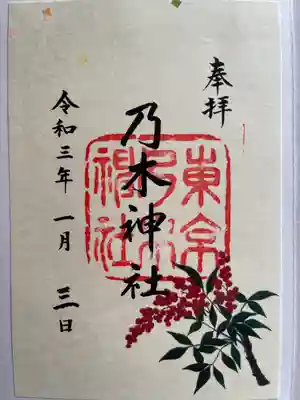 奉拝
乃木神社
東京乃木神社
令和三年 一月 三日